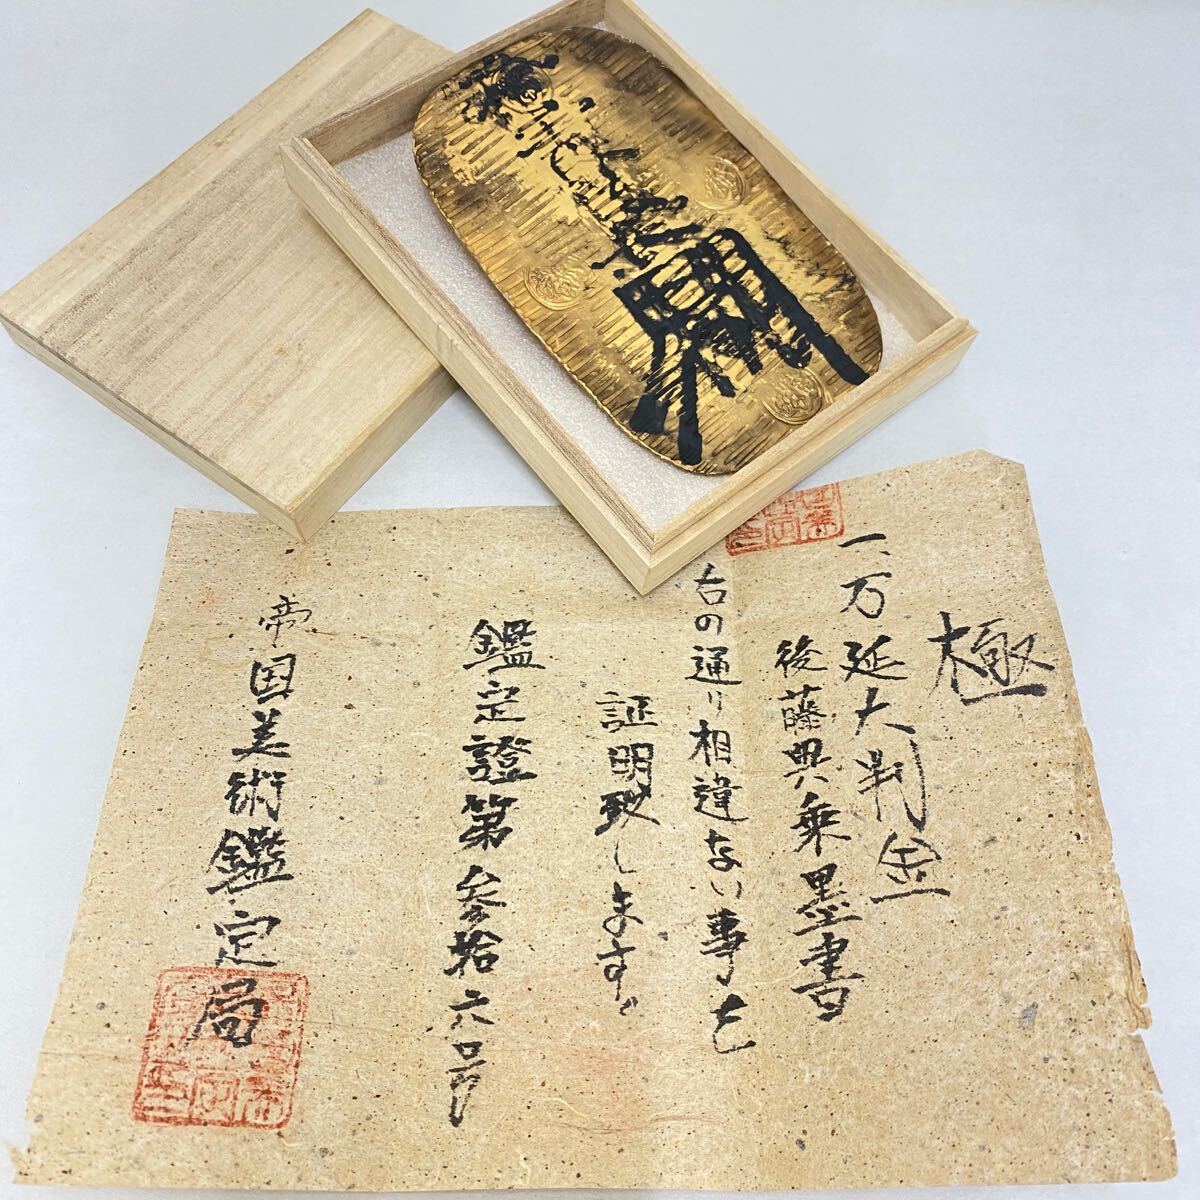 極
一、万延大判金
後藤典乗墨書
右の通り相違ない事を
証明致します。
鑑定證第参拾六号
帝国美術鑑定局